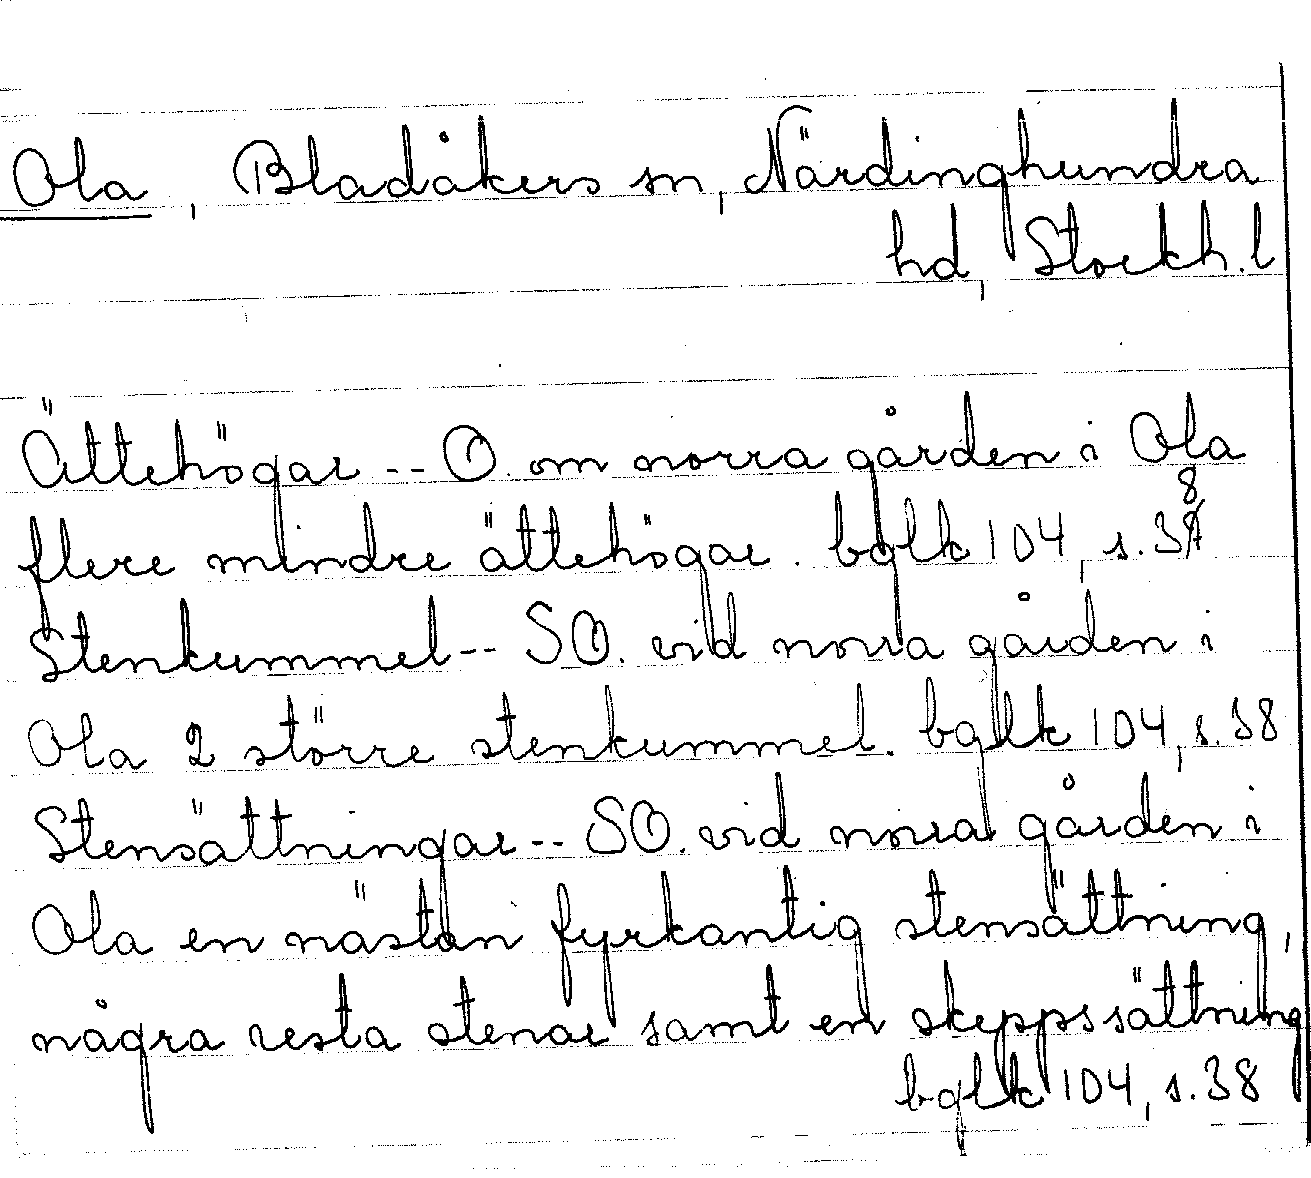 Ola, Bladåkers sn, Närdinghundra
hd, Stockh.l
Ättehögar -- O. om norra gården i Ola
flere mindre ättehögar. bglk 104, s. 38
Stenkummel -- SO. vid norra gården i
Ola 2 större stenkummel. bglk 104, s. 38
Stensättningar -- SO. vid norra gården i
Ola en nästan fyrkantig stensättning,
några resta stenar samt en skeppssättning
bglk 104, s. 38